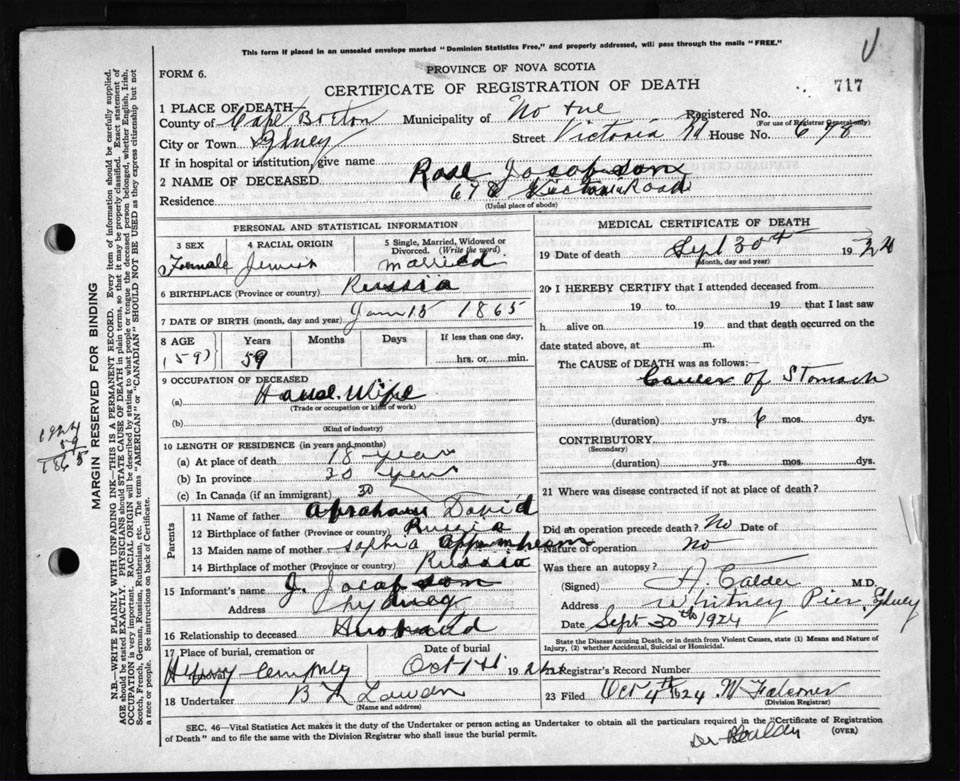 This form if placed in an unsealed envelope marked "Dominion Statistics Free," and properly addressed, will pass through the mails "FREE."
V
FORM 6.
PROVINCE OF NOVA SCOTIA
CERTIFICATE OF REGISTRATION OF DEATH
717
1 PLACE OF DEATH
County of Cape Breton Municipality of Registered No.
(For use of Registrar General only)
City or Town Sydney Street Victoria Rd House No. 678
If in hospital or institution, give name
2 NAME OF DECEASED Rose Jacobson
Residence 678 Victoria Road
(Usual place of abode)
PERSONAL AND STATISTICAL INFORMATION
3 SEX 4 RACIAL ORIGIN 5 Single, Married, Widowed or Divorced. (Write the word)
Female Jewish married
6 BIRTHPLACE (Province or country) Russia
7 DATE OF BIRTH (month, day and year) Jan 15 1865
8 AGE Years Months Days If less than one day,
(59) 59 hrs. or min.
9 OCCUPATION OF DECEASED
(a) House Wife
(Trade or occupation or kind of work)
(b)
(Kind of industry)
10 LENGTH OF RESIDENCE (in years and months)
(a) At place of death 18 years
(b) In province 30 years
(c) In Canada (if an immigrant) 30
Parents
11 Name of father Abraham David
12 Birthplace of father (Province or country) Russia
13 Maiden name of mother Sophia
14 Birthplace of mother (Province or country) Russia
15 Informant's name J. Jacobson
Address Sydney
16 Relationship to deceased Husband
17 Place of burial, cremation or removal Date of burial
Oct 1st 1924
18 Undertaker
(Name and address)
MEDICAL CERTIFICATE OF DEATH
19 Date of death Sept 30th 1924
(Month, day and year)
20 I HEREBY CERTIFY that I attended deceased from
19 to 19 that I last saw
h alive on 19 and that death occurred on the
date stated above, at m.
The CAUSE of DEATH was as follows:
Cancer of Stomach
(duration) yrs. 6 mos. dys.
CONTRIBUTORY
(Secondary)
(duration) yrs. mos. dys.
21 Where was disease contracted if not at place of death?
Did an operation precede death? No Date of
Nature of operation no
Was there an autopsy?
(Signed) A. Calder M.D.
Address Whitney Pier, Sydney
Date Sept 30th 1924
State the Disease causing Death, or in death from Violent Causes, state (1) Means and Nature of Injury, (2) whether Accidental, Suicidal or Homicidal.
22 Registrar's Record Number
23 Filed Oct 4th 1924
(Division Registrar)
SEC. 46—Vital Statistics Act makes it the duty of the Undertaker or person acting as Undertaker to obtain all the particulars required in the "Certificate of Registration
of Death" and to file the same with the Division Registrar who shall issue the burial permit.
(OVER)
MARGIN RESERVED FOR BINDING
N.B.—WRITE PLAINLY WITH UNFADING INK—THIS IS A PERMANENT RECORD. Every item of information should be carefully supplied.
AGE should be stated EXACTLY. PHYSICIANS should STATE CAUSE OF DEATH in plain terms, so that it may be properly classified. Exact statement of
OCCUPATION is very important. RACIAL ORIGIN will be described by stating to what people or tongue the deceased person belonged, whether English, Irish,
Scotch, French, German, Russian, Ruthenian, etc. The terms "AMERICAN" or "CANADIAN" SHOULD NOT BE USED as they express citizenship but not
a race or people. See instructions on back of Certificate.
1924
59
1865